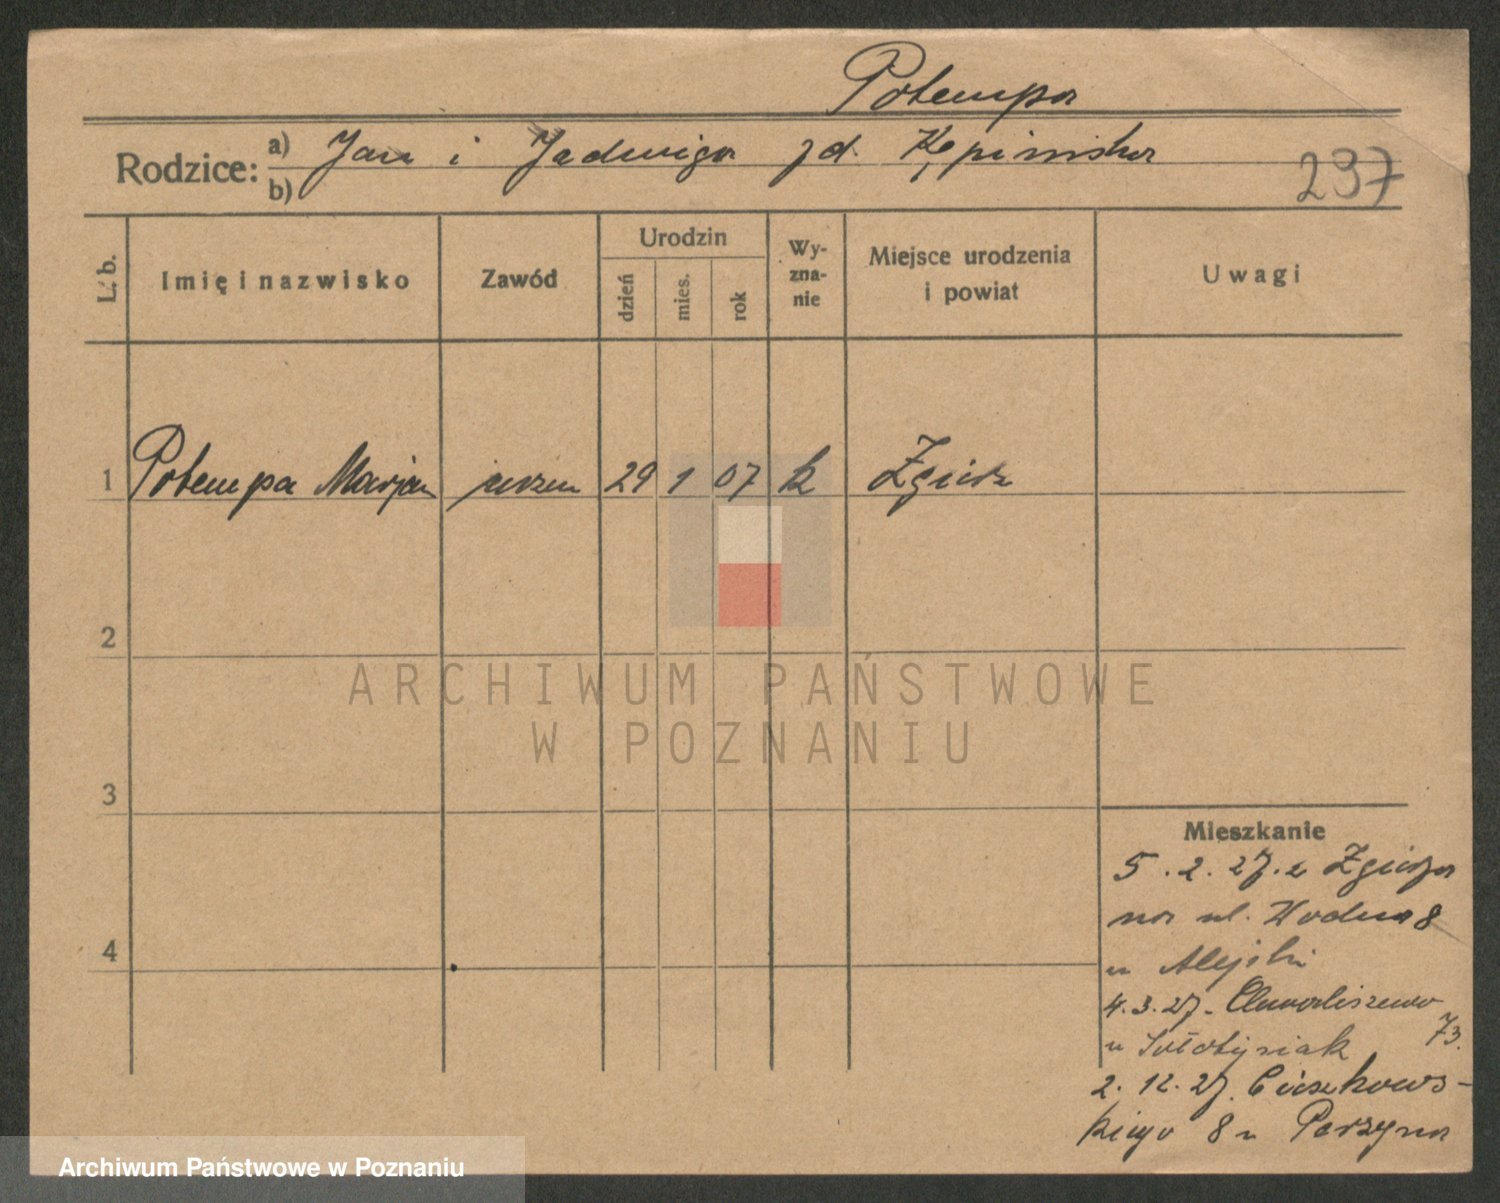 Potempa
Rodzice: a) b) Jan i Jadwiga zd. Kępińska
237
L. b.
Imię i nazwisko
Zawód
Urodzin
dzień
mies.
rok
Wy-
zna-
nie
Miejsce urodzenia
i powiat
Uwagi
1 Potempa Marjan uczeń 29 1 07 k Zgierz
2
3
4
Mieszkanie
5.2.27. z Zgierza
na ul. Wodna 8
u
4.3.27. Chwaliszewo
73.
u
2.12.27. Cieszkows-
kiego 8 u Parzyna
ARCHIWUM PAŃSTWOWE
W POZNANIU
Archiwum Państwowe w Poznaniu